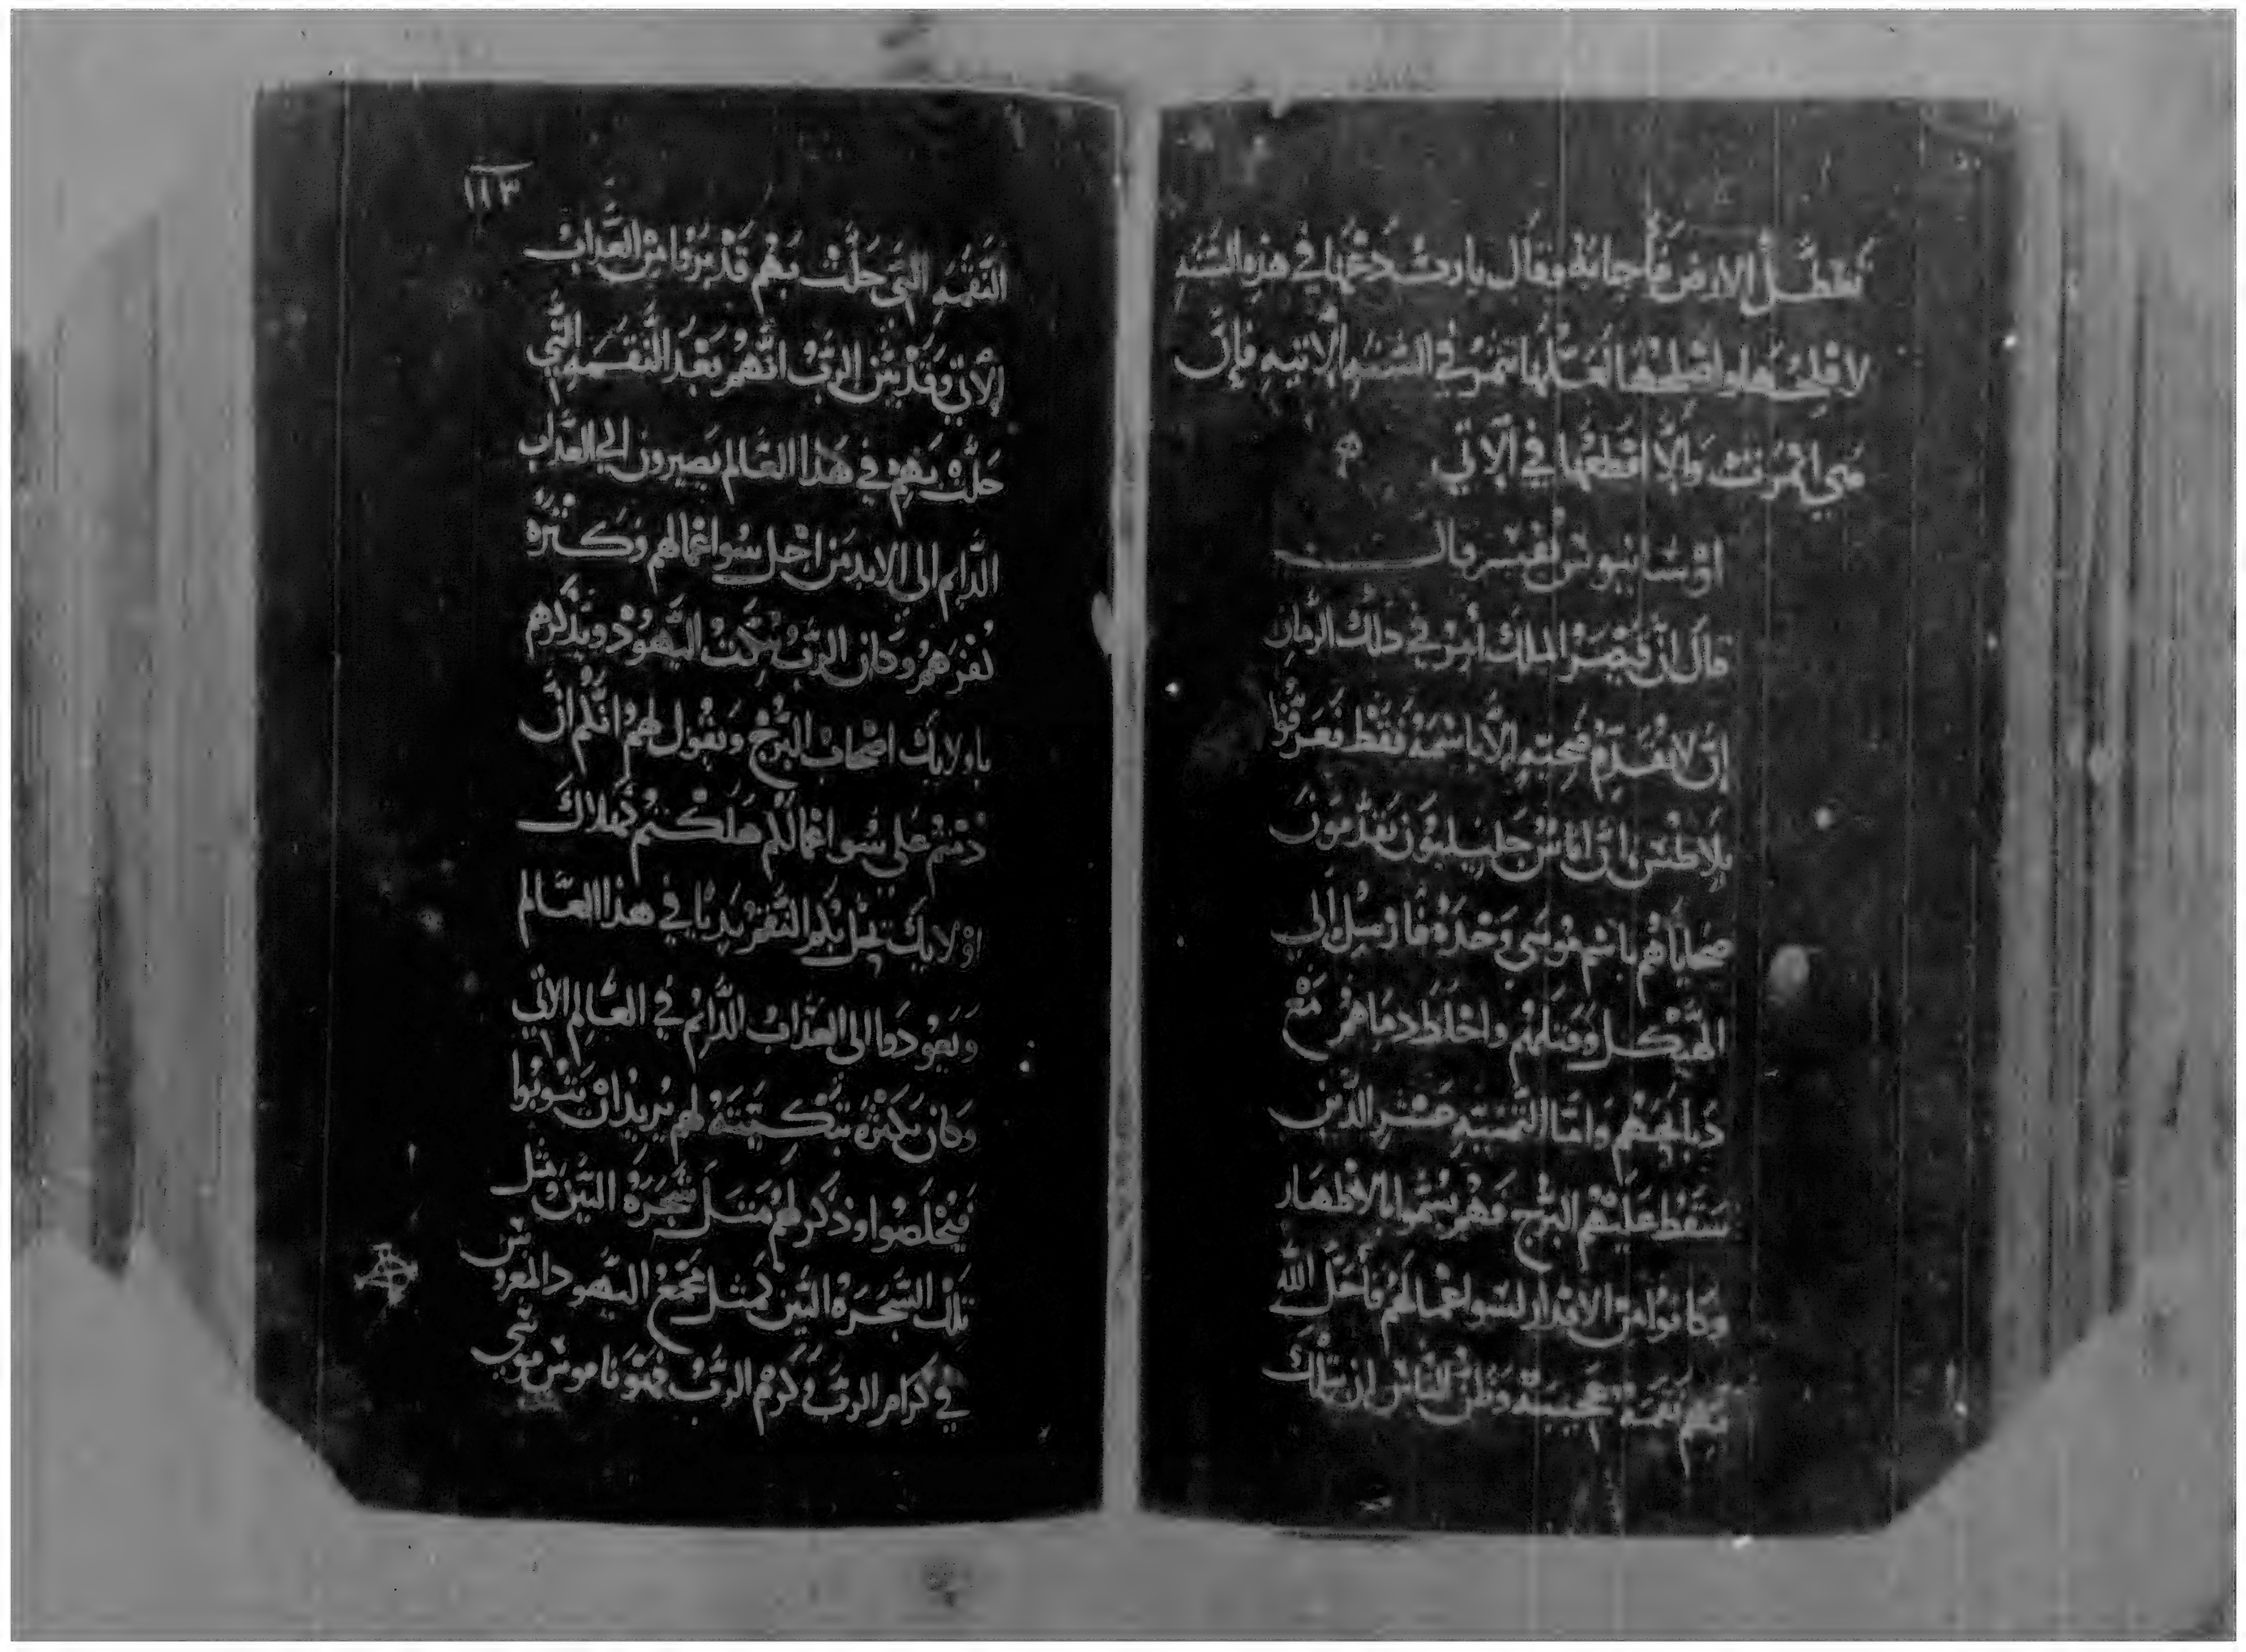 تعطل الارض فأجابهُ وقال يا رب دعها في هذه السنه
لافلحُ هاواصلحُها لعَلّها تثمرُ في السَنَه الاتيه فإن
هي اثمرَت وَإلّا اقطعْها في الآتي
اوسابيوس يفسر قال
قال انّ قيصر الملك أمِرَ في ذلك الزمان
إن لا نقدِّم ضحيته إلّا باسْمهُ فقط فعَرّفوا
بلاطس ان اناسْ جليليون يقدّمون
ضحاياهُم باسْم موسَى وَحْدَهُ فارسِل إلى
الهَيْكل وقتلهُم واخلط دماهمُ مَع
دبايحَهُم وَامّا الثمنيه عشر الذين
سَقط عَليْهم البُرج فهُم سُمّوا بالاظهار
وكانوا من الاقدار لسَوا عمالهُم فأحَلّ الله
بهم نقمة عجيبة وظنّ الناسْ ان تلك
١١٣
النَقمَه التي حَلت بهُم قد برَوا من العَداب
الآتي وقد بيّن الربُ انّهُم بَعْدَ النَقمه التي
حَلت بَهم في هَذا العَالم يَصيرون الي العَداب
الدَايم الي الابد من اجل سُوا عمالهم وَكثرة
كفرهمُ وكان الربُ يبَكتُ اليَهُودْ ويذكرهم
باولايك اصحاب البُرج وَيقُول لهمُ انكم ان
دُمتم عَلي سُوا عمالكم هَلكتم كهَلاك
اوْلايكَ تحل بكم النقمُ بَديًا في هذا العَالم
وَتعودَوا الى العَذاب الدَايمُ في العَالم الآتي
وَكان بكثرة تبْكيتهُ لهم يُريدُ انْ يَتُوبُوا
فيخلصُوا وذكر لهُم مَثل شَجَرَةُ التين ومثل
تِلك الشَجَرَة التين كمثل مَجمَعُ اليَهود المغروس
في كرام الربّ وَكرمْ الربْ فهُوَ ناموسْ موسى